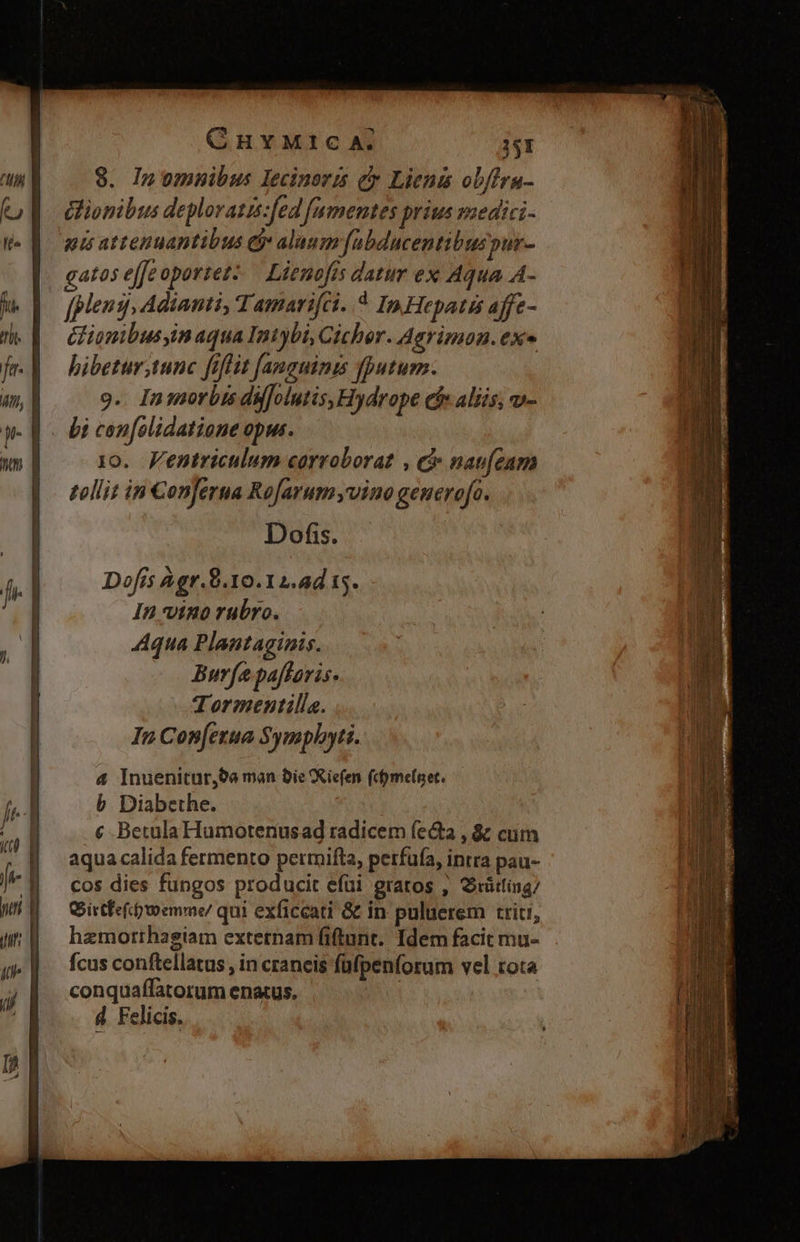 CHYMICA. 351
8. In omnibus Iecinoris & Lienis obſtru-
ctionibus deploratis: ſed ſumentes prius medici-
nis attenuantibus & aluum ſubducentibus pur-
gatos eſſe oportet: Lienoſis datur ex Aqua A-
ſplenij, Adianti, Tamariſci. d In Hepatis affe-
ctionibus, in aqua Intybi, Cichor. Agrimon. ex-
hibetur, tunc ſiſtit ſanguinis ſputum.
9. In morbis diſſolutis, Hydrope & aliis, v-
bi conſolidatione opus.
10. Ventriculum corroborat, & nauſeam
tollit in Conſerua Roſarum, vino generoſo.
Doſis.
Doſis à gr. 8. 10. 12. ad 15.
In vino rubro.
Aqua Plantaginis.
Burſæ paſtoris.
Tormentillæ.
In Conſerua Symphyti.
a Inuenitur, da man die Kieſen ſchmeltzet.
b Diabethe.
c Betula Humotenus ad radicem ſecta, & cum
aqua calida fermento permiſta, perfuſa, intra pau-
cos dies fungos producit eſui gratos,
qui exſiccati & in puluerem triti,
hæmorrhagiam externam ſiſtunt. Idem facit mu-
ſcus conſtellatus, in craneis ſuſpenſorum vel rota
conquaſſatorum enatus.
d Felicis.